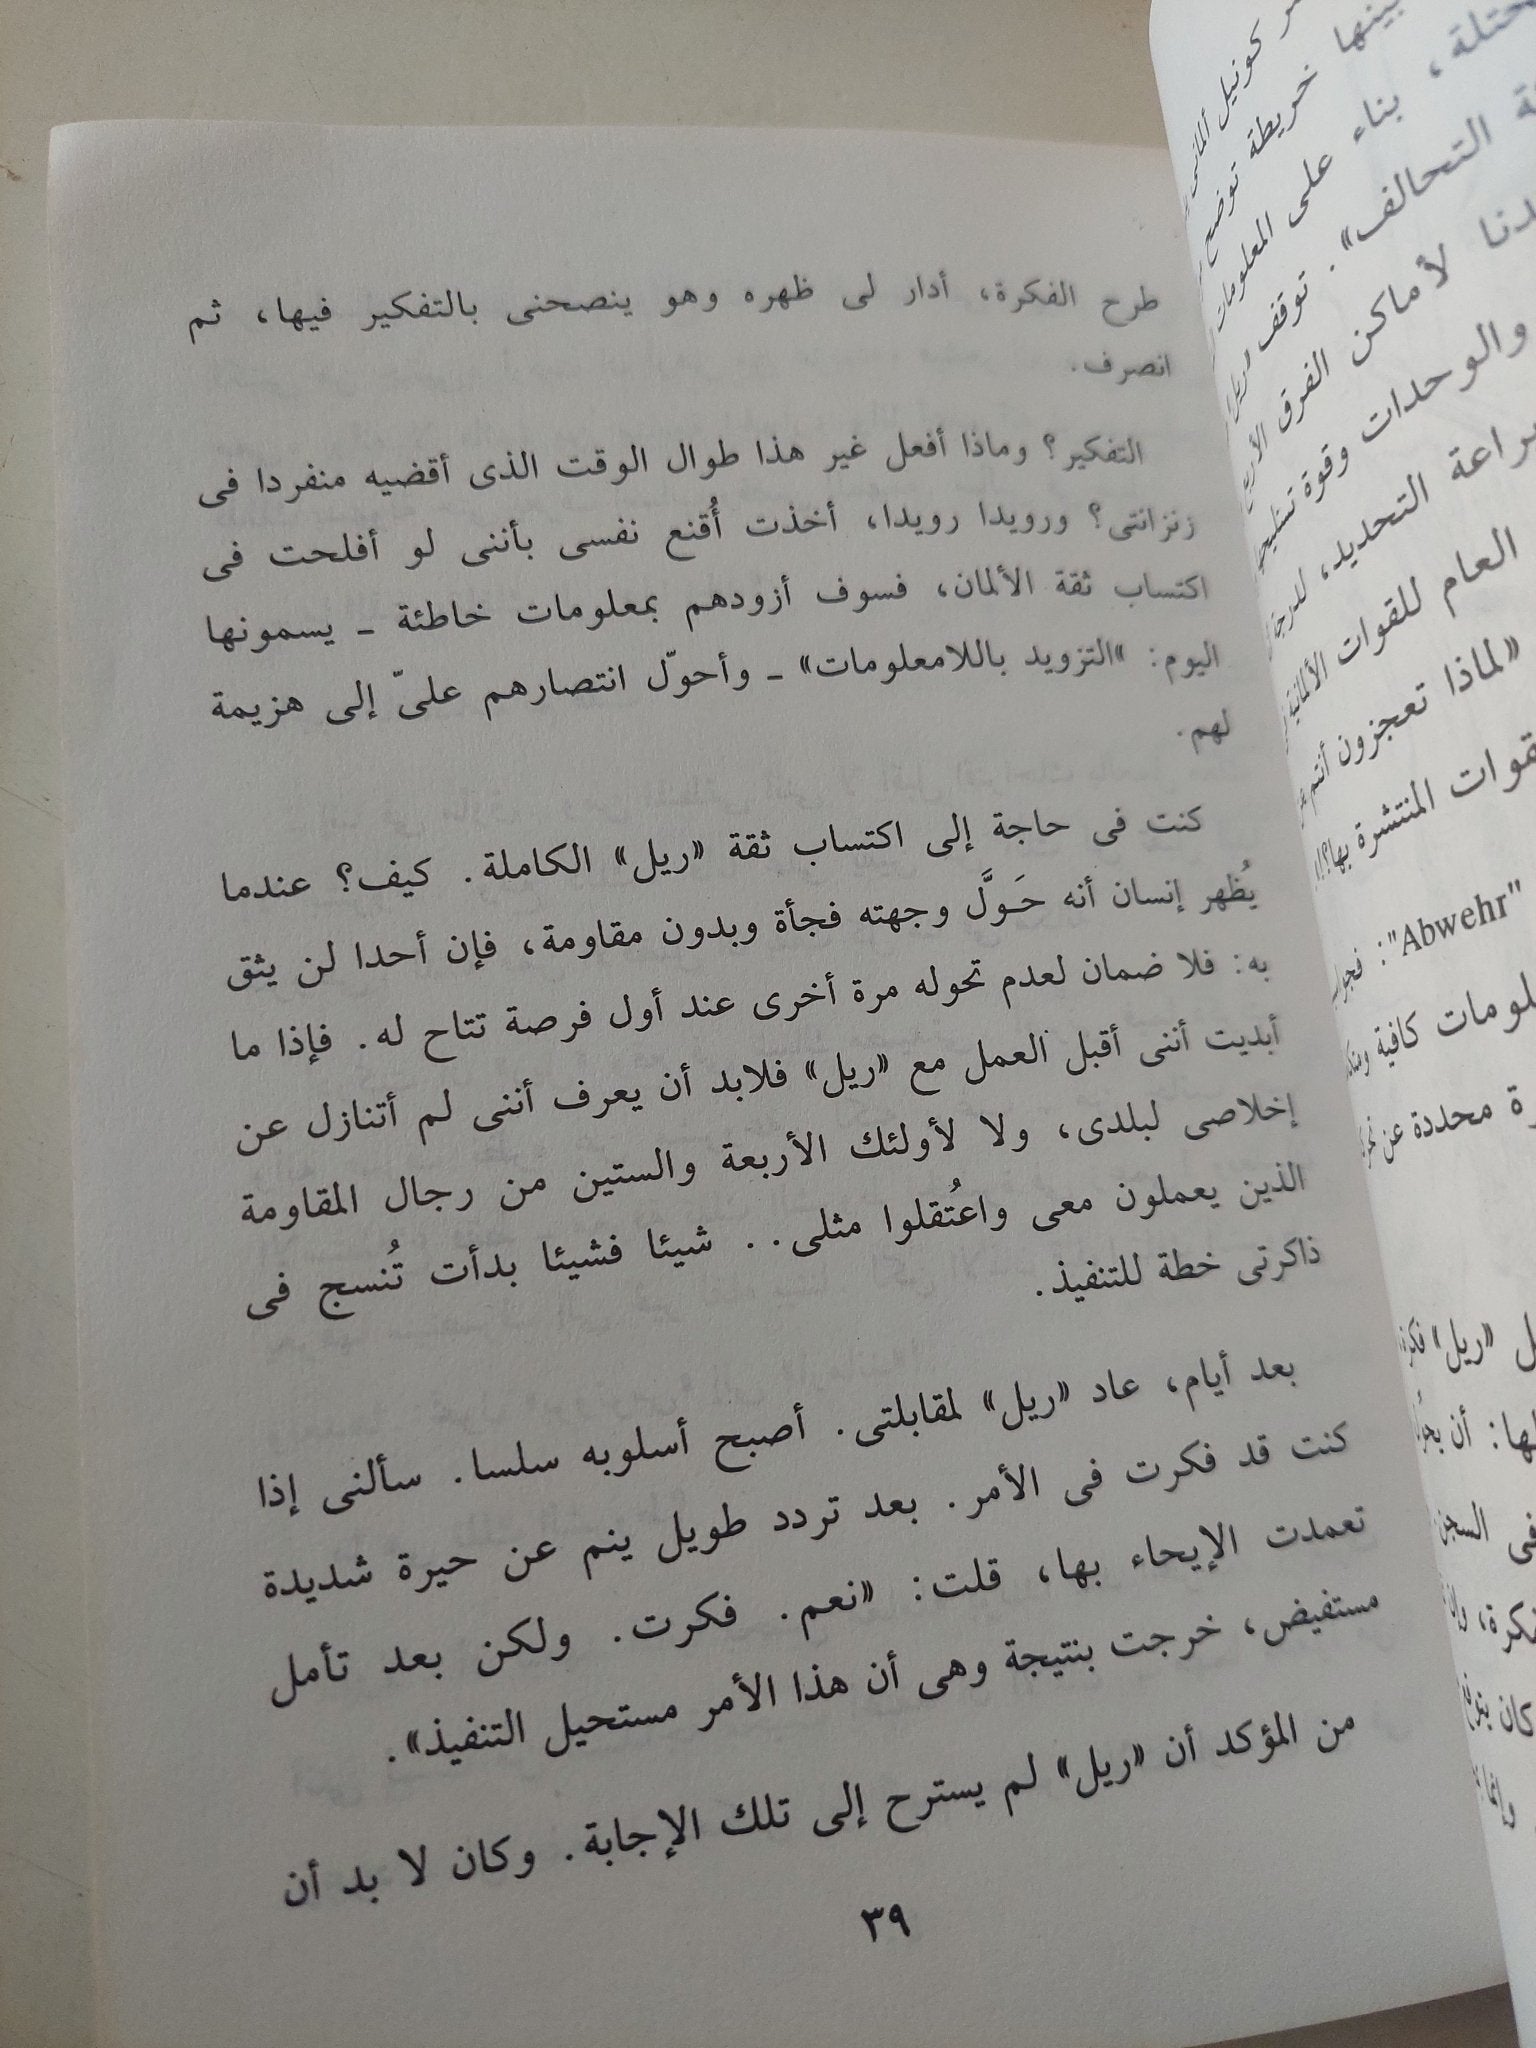 طرح الفكرة، أدار لى ظهره وهو ينصحنى بالتفكير فيها، ثم
انصرف.
التفكير؟ وماذا أفعل غير هذا طوال الوقت الذى أقضيه منفردا فى
زنزانتى؟ ورويدا رويدا، أخذت أُقنع نفسى بأننى لو أفلحت فى
اكتساب ثقة الألمان، فسوف أزودهم بمعلومات خاطئة ـ يسمونها
اليوم: «التزويد باللامعلومات» ـ وأحوّل انتصارهم علىّ إلى هزيمة
لهم.
كنت فى حاجة إلى اكتساب ثقة «ريل» الكاملة. كيف؟ عندما
يُظهر إنسان أنه حَـولَّ وجهته فجأة وبدون مقاومة، فإن أحدا لن يثق
به: فلا ضمان لعدم تحوله مرة أخرى عند أول فرصة تتاح له. فإذا ما
أبديت أننى أقبل العمل مع «ريل» فلابد أن يعرف أننى لم أتنازل عن
إخلاصى لبلدى، ولا لأولئك الأربعة والستين من رجال المقاومة
الذين يعملون معى واعتُقلوا مثلى.. شيئا فشيئا بدأت تُنسج فى
ذاكرتى خطة للتنفيذ.
بعد أيام، عاد «ريل» لمقابلتى. أصبح أسلوبه سلسا. سألنى إذا
كنت قد فكرت فى الأمر. بعد تردد طويل ينم عن حيرة شديدة
تعمدت الإيحاء بها، قلت: «نعم. فكرت. ولكن بعد تأمل
مستفيض، خرجت بنتيجة وهى أن هذا الأمر مستحيل التنفيذ».
من المؤكد أن «ريل» لم يسترح إلى تلك الإجابة. وكان لا بد أن
٣٩
كونيل ألمانى
بينها خريطة توضح
بناء على المعلومات
التحالف». توقف
لأماكن الفرق
والوحدات وقوة
التحديد،
العام للقوات الألمانية
«لماذا تعجزون أنتم
المنتشرة بها؟!!
"Abwehr":
كافية
محددة عن
«ريل»
أن
السجن
كان